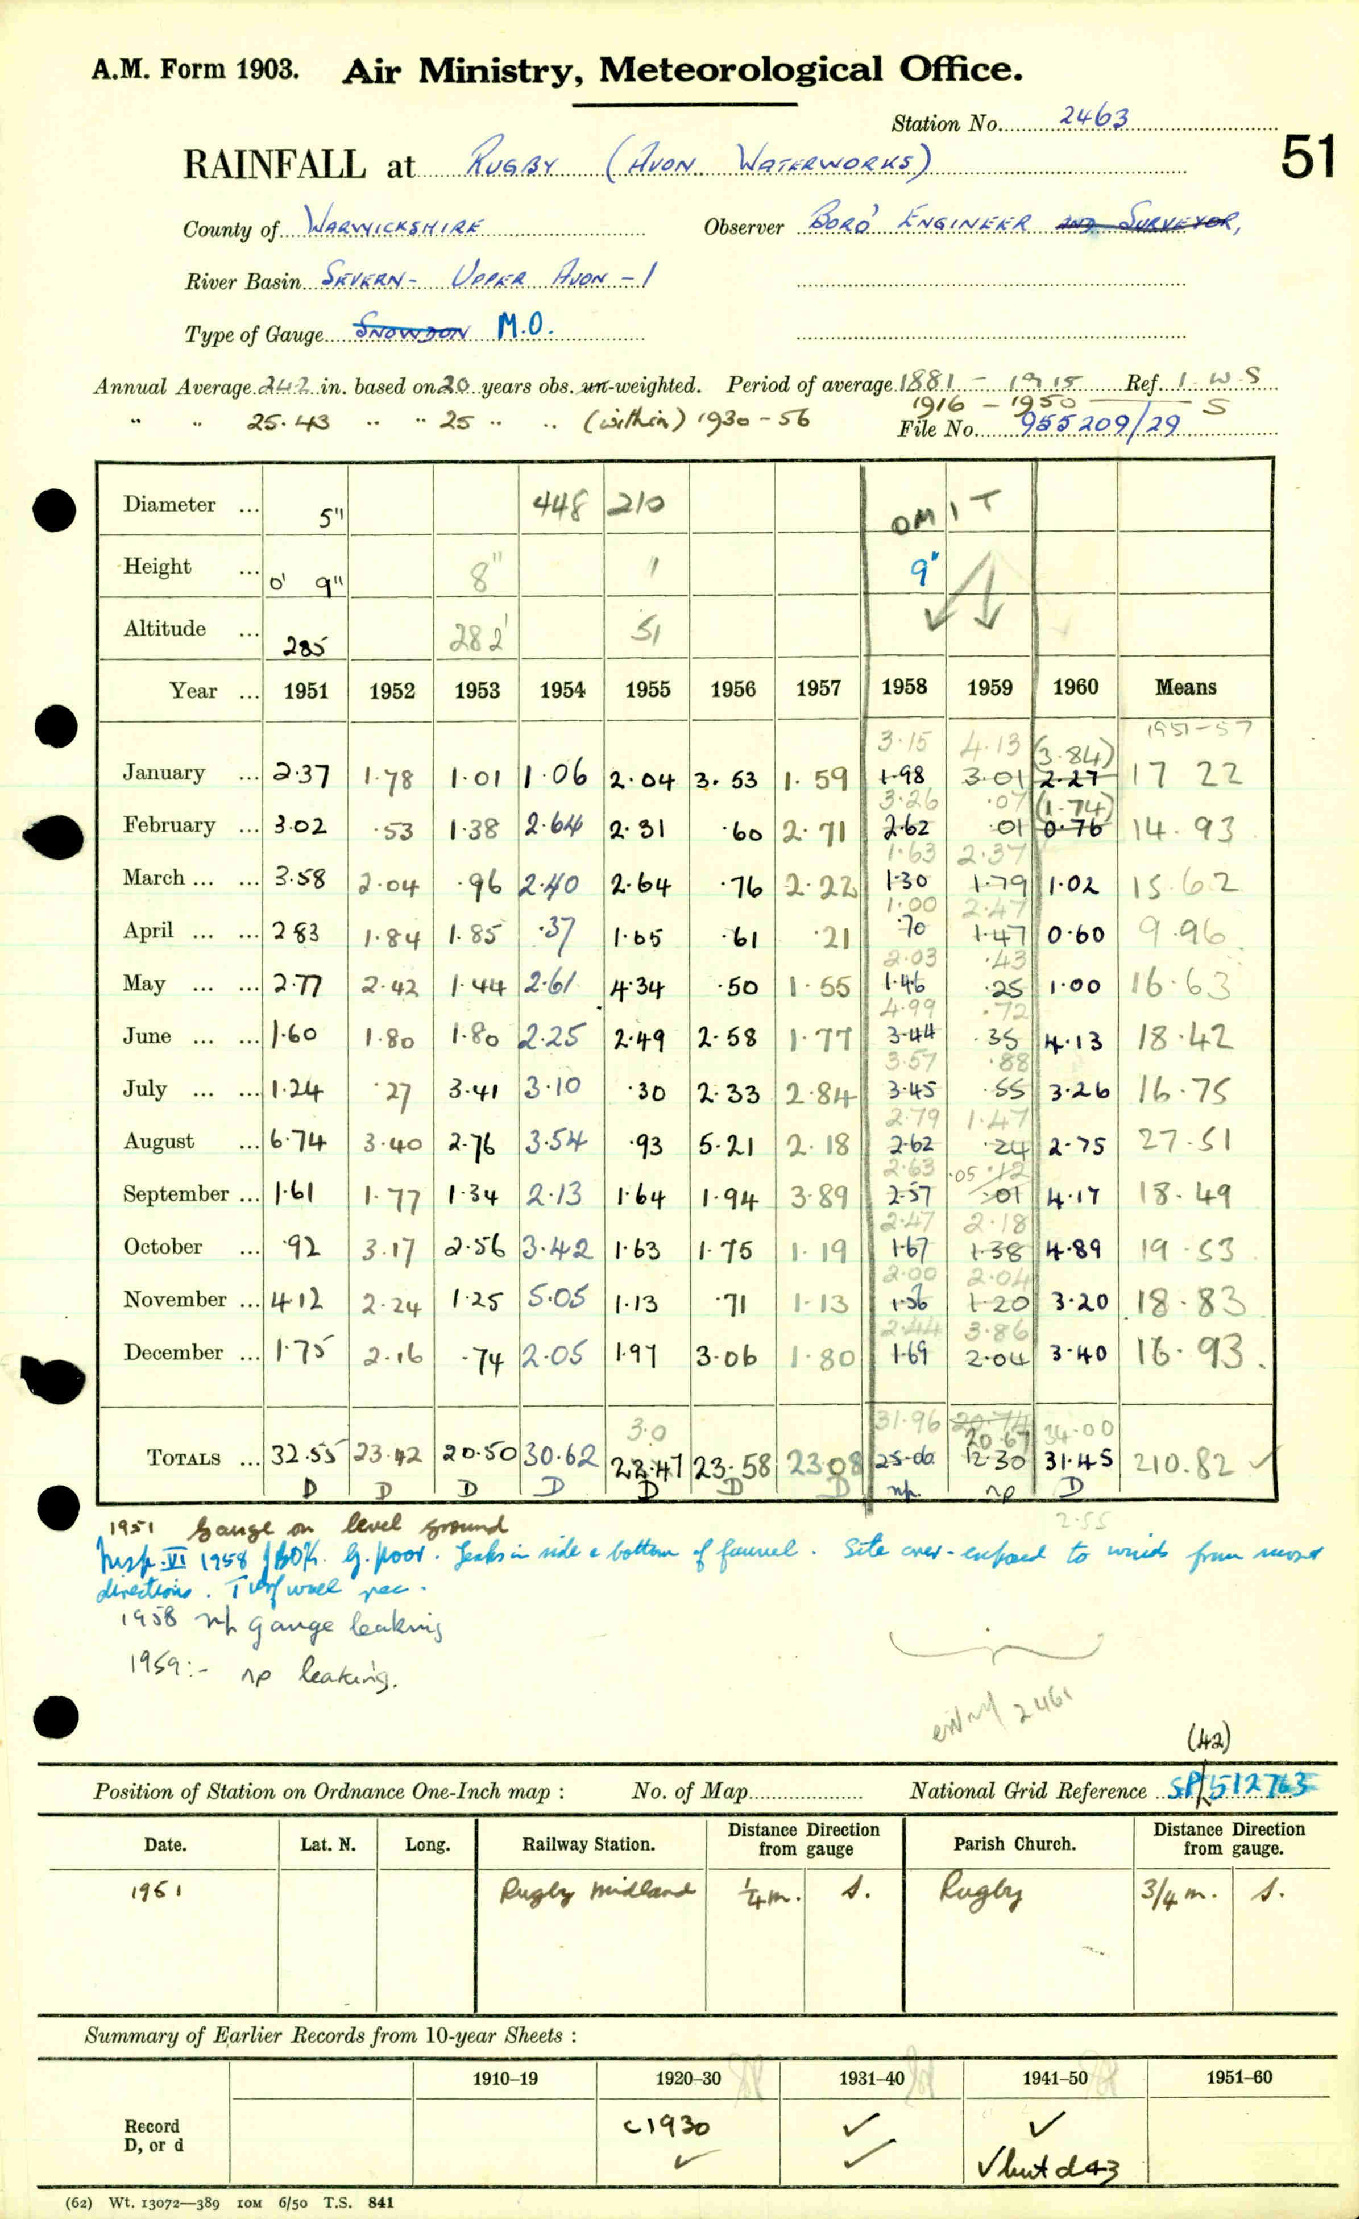 A.M. Form 1903. Air Ministry, Meteorological Office.
Station No. 2463
51
RAINFALL at RUGBY (AVON WATERWORKS)
County of WARWICKSHIRE Observer BORO' ENGINEER AND SURVEYOR,
River Basin SEVERN - UPPER AVON - 1
Type of Gauge SNOWDON M.O.
Annual Average 24.2 in. based on 20 years obs. un-weighted. Period of average 1881 - 1915 Ref. I W S
1916 - 1950 S
" " 25.43 " " 25 " " (within) 1930-56 File No. 955209/29
Diameter ... 5" 448 210 OMIT
Height ... 0' 9" 8" 1 9"
Altitude ... 285 282' 51
Year ... 1951 1952 1953 1954 1955 1956 1957 1958 1959 1960 Means
1951-57
3.15 4.13 (3.84)
January ... 2.37 1.78 1.01 1.06 2.04 3.53 1.59 1.98 3.01 2.27 17 22
3.26 .07 (1.74)
February ... 3.02 .53 1.38 2.64 2.31 .60 2.71 2.62 .01 0.76 14.93
1.63 2.37
March ... ... 3.58 2.04 .96 2.40 2.64 .76 2.22 1.30 1.79 1.02 15.62
1.00 2.47
April ... ... 2 83 1.84 1.85 .37 1.65 .61 .21 .70 1.47 0.60 9.96
2.03 .43
May ... ... 2.77 2.42 1.44 2.61 4.34 .50 1.55 1.46 .25 1.00 16.63
4.99 .72
June ... ... 1.60 1.80 1.80 2.25 2.49 2.58 1.77 3.44 35 4.13 18.42
3.57 .88
July ... ... 1.24 .27 3.41 3.10 .30 2.33 2.84 3.45 .55 3.26 16.75
2.79 1.47
August ... 6.74 3.40 2.76 3.54 .93 5.21 2.18 2.62 .24 2.75 27.51
2.63 .05 .12
September ... 1.61 1.77 1.34 2.13 1.64 1.94 3.89 2.57 .01 4.17 18.49
2.47 2.18
October ... .92 3.17 2.56 3.42 1.63 1.75 1.19 1.67 1.38 4.89 19.53
2.00 2.04
November ... 4.12 2.24 1.25 5.05 1.13 .71 1.13 1.56 1.20 3.20 18.83
2.44 3.86
December ... 1.75 2.16 .74 2.05 1.97 3.06 1.80 1.69 2.04 3.40 16.93.
3.0 31.96 20.74 34.00
20.67
TOTALS ... 32.55 23.42 20.50 30.62 22.47 23.58 23 08 25.06 12.30 31.45 210.82 ✓
D D D D D D D np. np D
2.55
1951 Gauge on level ground
Insp. VI 1958 G. poor. Leaks in side & bottom of funnel. Site over-exposed to winds from most
directions. Turf wall rec.
1958 np gauge leaking
1959:- np leaking.
2461
(42)
Position of Station on Ordnance One-Inch map : No. of Map National Grid Reference SP/512763
Date. Lat. N. Long. Railway Station. Distance from Direction gauge Parish Church. Distance from Direction gauge.
1951 Rugby Midland 1/4 m. S. Rugby 3/4 m. S.
Summary of Earlier Records from 10-year Sheets :
1910–19 1920–30 1931–40 1941–50 1951–60
Record c1930 ✓ ✓
D, or d ✓ ✓ ✓ but d 43
(62) Wt. 13072—389 10M 6/50 T.S. 841